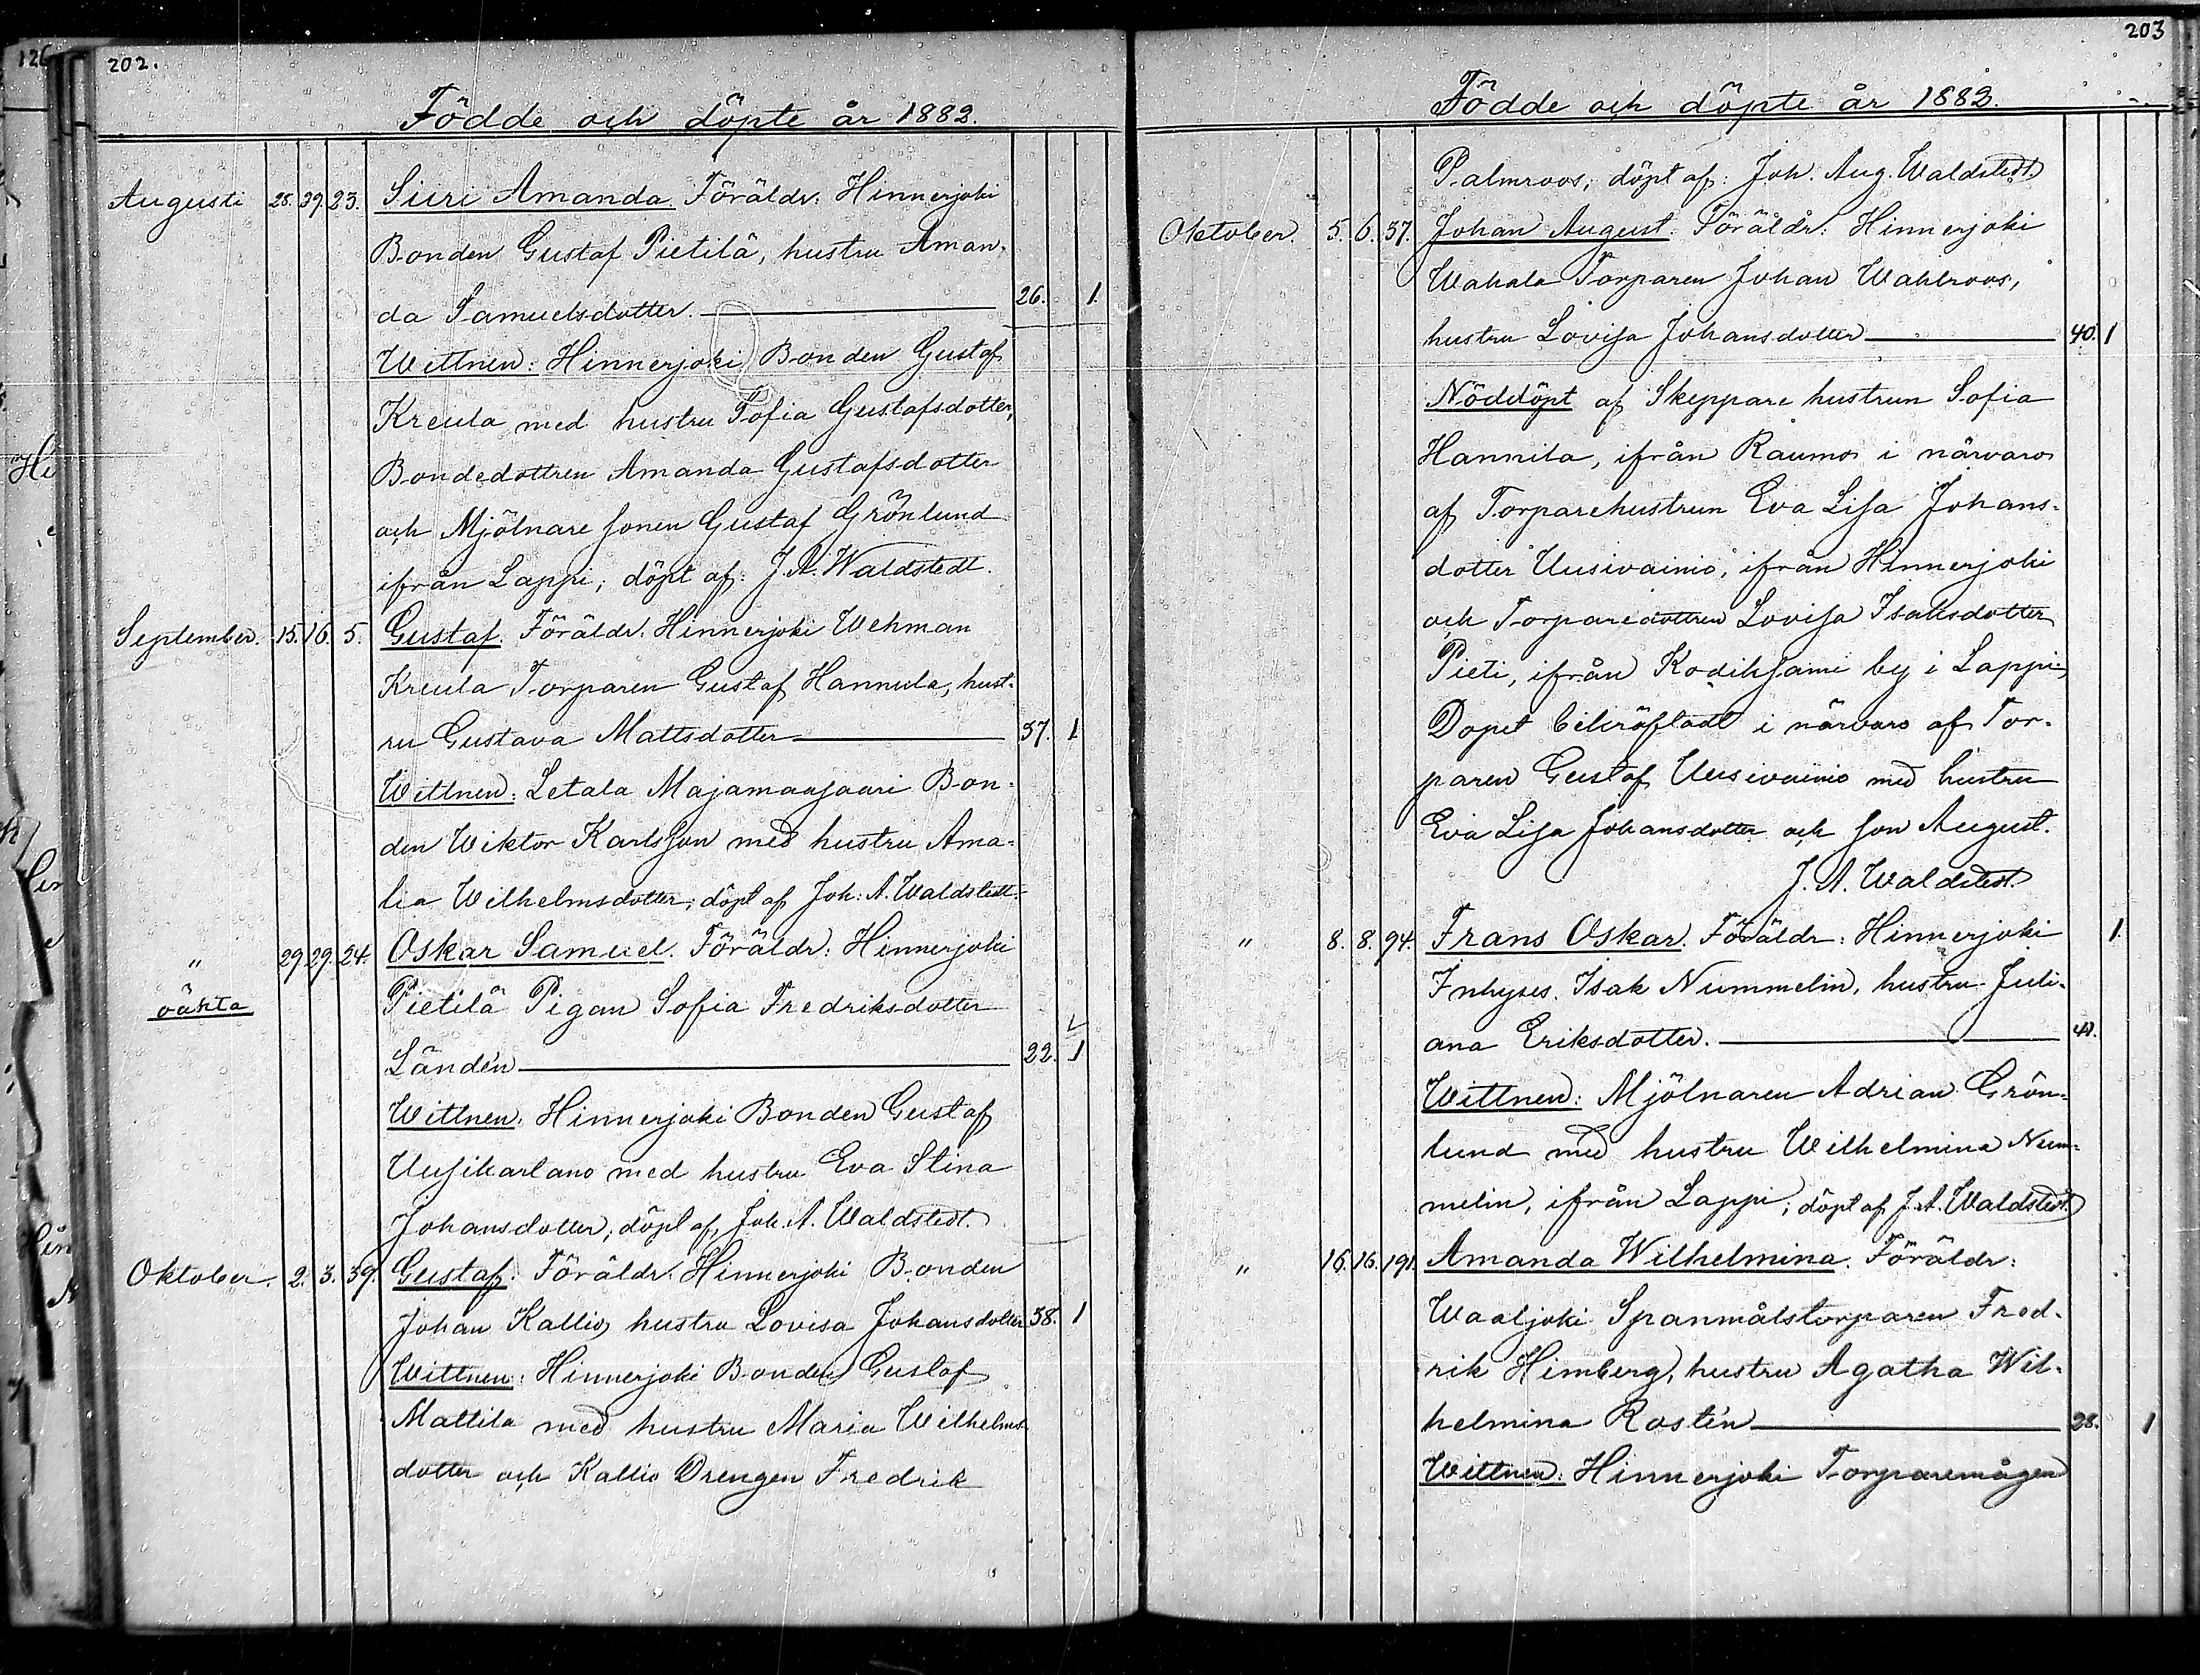 126
202.
Födde och döpte år 1882.
Augusti 28. 29. 23. Siiri Amanda. Föräldr: Hinnerjoki
Bonden Gustaf Pietilä, hustru Aman-
da Samuelsdotter. 26. 1.
Wittnen: Hinnerjoki Bonden Gustaf
Kreula med hustru Sofia Gustafsdotter,
Bondedottren Amanda Gustafsdotter
och Mjölnare sonen Gustaf Grönlund
ifrån Lappi; döpt af: J. A. Waldstedt.
September. 15. 16. 5. Gustaf. Föräldr. Hinnerjoki Wehman
Kreula Torparen Gustaf Hannula, hust-
ru Gustava Mattsdotter 37. 1
Wittnen: Letala Majamaasaari Bon-
den Wiktor Karlsson med hustru Ama-
lia Wilhelmsdotter; döpt af Joh. A. Waldstedt.
" 29. 29. 24. Oskar Samuel. Föräldr: Hinnerjoki
oäkta Pietilä Pigan Sofia Fredriksdotter
Ländén 22. 1
Wittnen: Hinnerjoki Bonden Gustaf
Uusikartano med hustru Eva Stina
Johansdotter; döpt af, Joh. A. Waldstedt.
Oktober. 2. 3. 39. Gustaf. Föräldr. Hinnerjoki Bonden
Johan Kallio, hustru Lovisa Johansdotter 38. 1
Wittnen: Hinnerjoki Bonden Gustaf
Mattila med hustru Maria Wilhelms-
dotter och Kallio Drengen Fredrik
203
Födde och döpte år 1882.
Palmroos; döpt af: Joh. Aug. Waldstedt
Oktober. 5. 6. 37. Johan August. Föräldr: Hinnerjoki
Wahala Torparen Johan Wahlroos,
hustru Lovisa Johansdotter 40. 1
Nöddöpt af Skeppare hustrun Sofia
Hannila, ifrån Raumo i närvaro
af Torparehustrun Eva Lisa Johans-
dotter Uusivainio, ifrån Hinnerjoki
och Torparedottren Lovisa Isaksdotter
Pieti, ifrån Kodiksami by i Lappi;
Dopet bekräftadt i närvaro af Tor-
paren Gustaf Uusivainio med hustru
Eva Lisa Johansdotter och son August.
J. A. Waldstedt.
" 8. 8. 94. Frans Oskar. Föräldr: Hinnerjoki 1.
Inhyses. Isak Nummelin, hustru Juli-
ana Eriksdotter. 41.
Wittnen: Mjölnaren Adrian Grön-
lund med hustru Wilhelmina Num-
melin, ifrån Lappi; döpt af J. A. Waldstedt
" 16. 16. 191. Amanda Wilhelmina. Föräldr:
Waaljoki Spanmålstorparen Fred-
rik Himberg, hustru Agatha Wil-
helmina Rostén 28. 1
Wittnen: Hinnerjoki Torparemågen